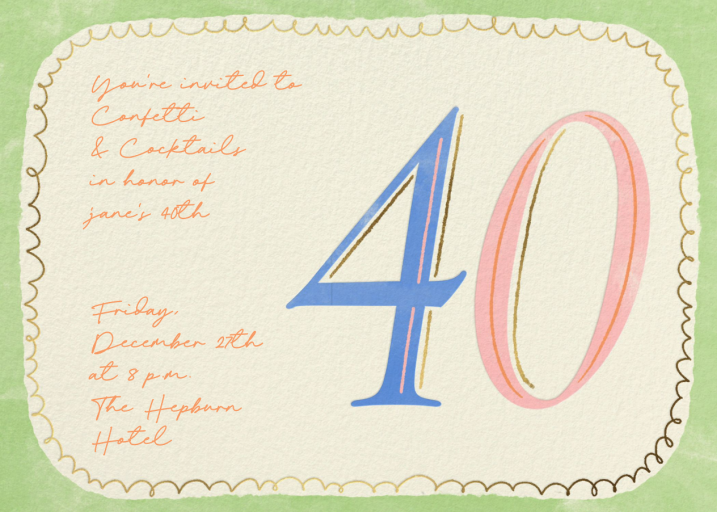 You're invited to
Confetti
& Cocktails
in honor of
jane's 40th
40
Friday,
December 27th
at 8 p.m.
The Hepburn
Hotel